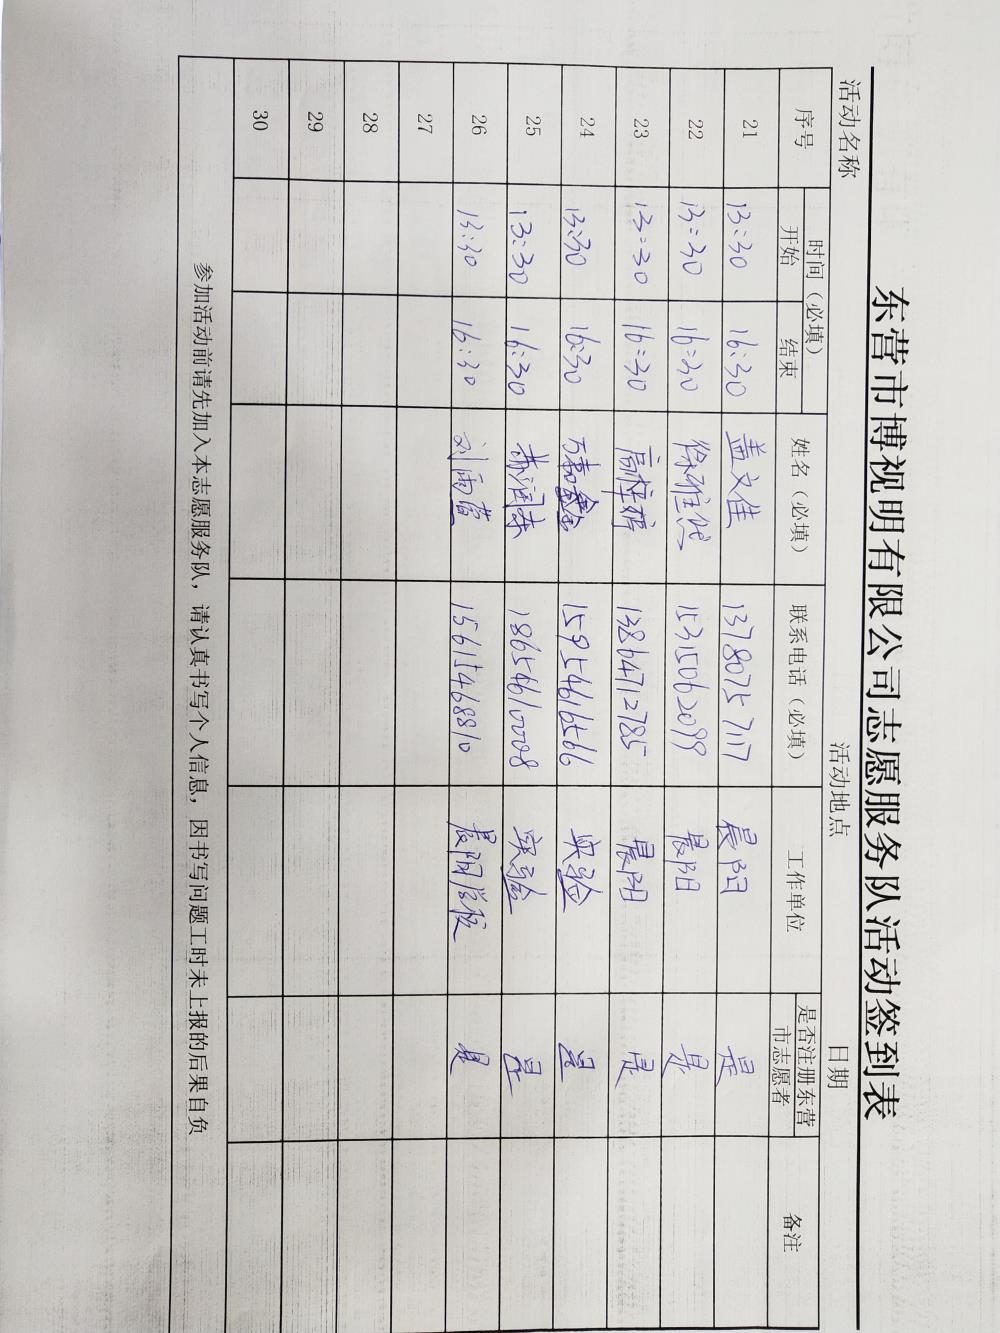 东营市博视明有限公司志愿服务队活动签到表
活动名称 活动地点 日期
序号 时间（必填） 姓名（必填） 联系电话（必填） 工作单位 是否注册东营市志愿者 备注
开始 结束
21 13:30 16:30 盖文佳 13780757117 晨阳 是
22 13:30 16:30 徐雅倩 15315062099 晨阳 是
23 13:30 16:30 13864712785 晨阳 是
24 13:30 16:30 万嘉鑫 15954616566 实验 是
25 13:30 16:30 18654610008 实验 是
26 13:30 16:30 刘雨萱 15615468810 晨阳学校 是
27
28
29
30
参加活动前请先加入本志愿服务队，请认真书写个人信息，因书写问题工时未上报的后果自负